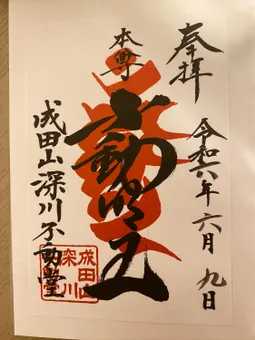 奉拝
令和六年六月九日
本尊
不動明王
成田山深川不動堂
成田山
深川
不動堂